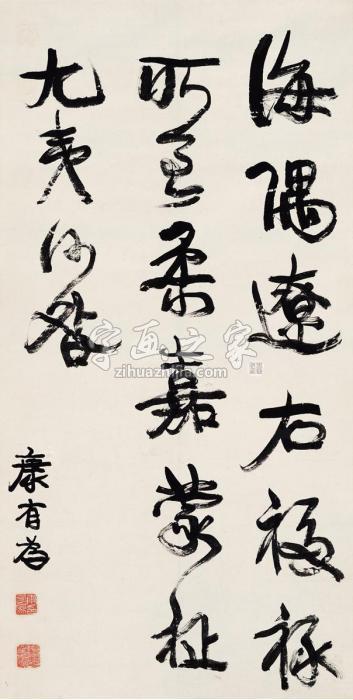 海隅遼右福祿
所至柔嘉蒙祉
九夷何咎
康有為
字画之家
zihuazhijia.com